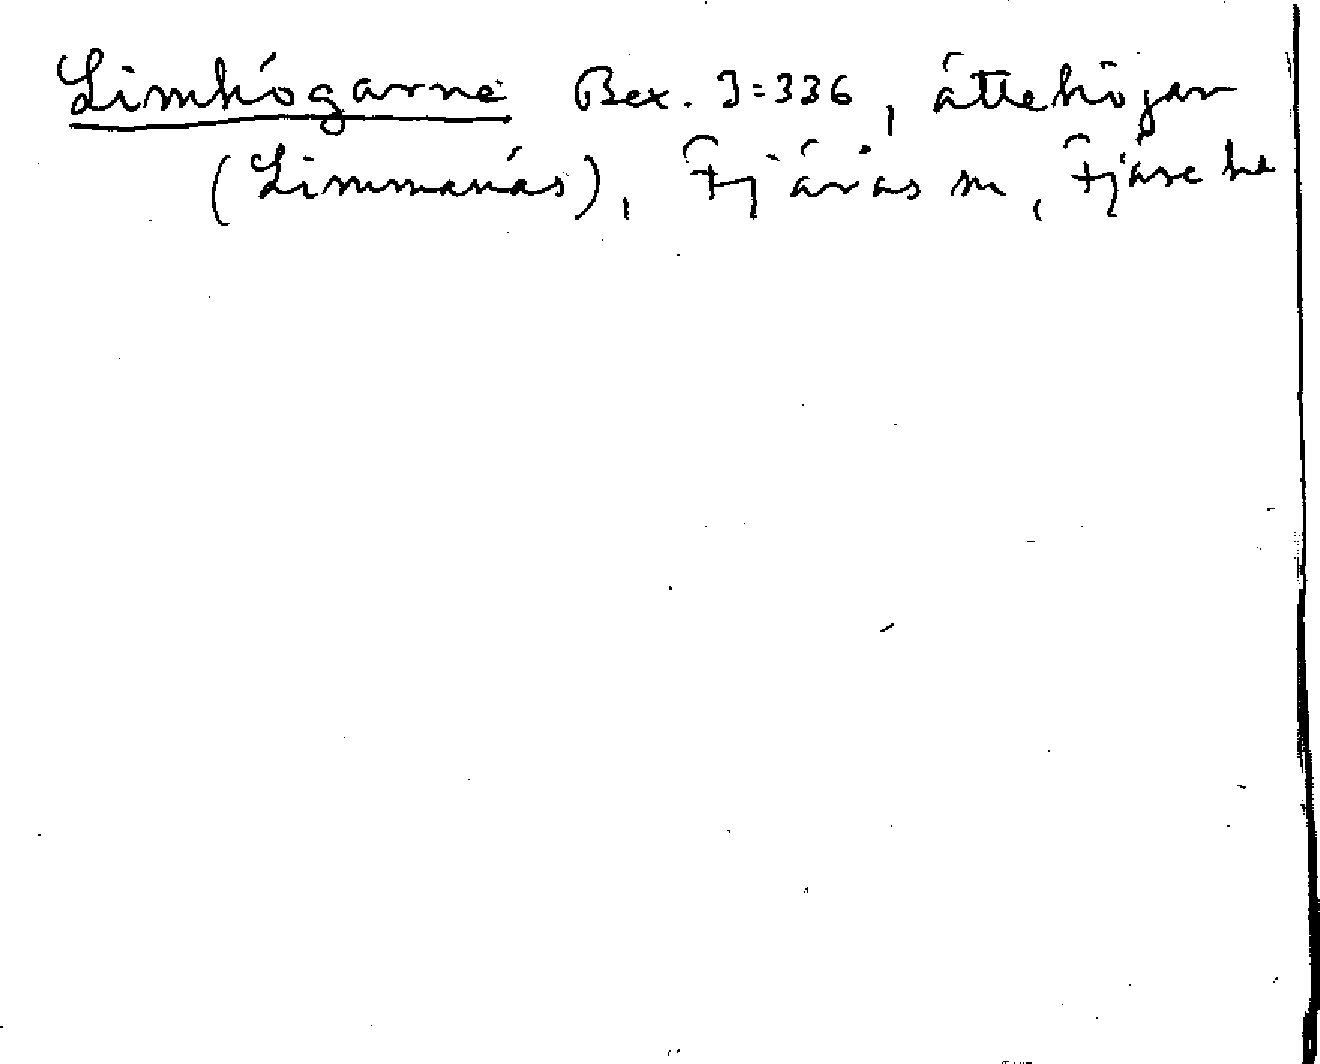 Limhögarne Bex. I=336, ättehögar
(Limmanäs), Fjärås sn, Fjäre hd